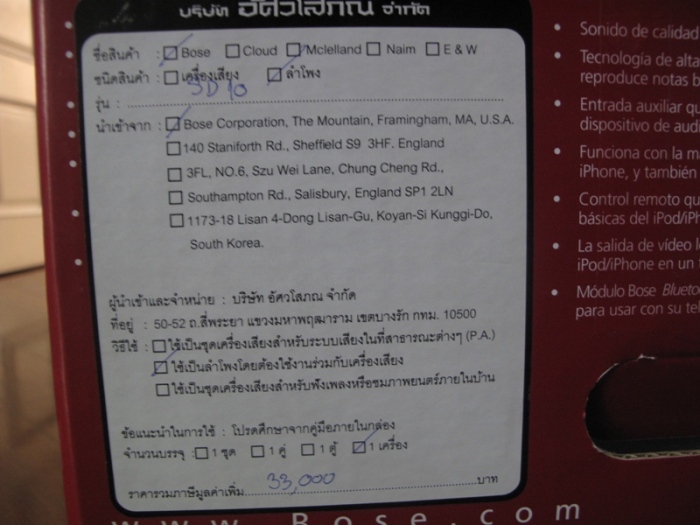 บริษัท อัศวโสภณ จำกัด
ชื่อสินค้า : ☑ Bose ☐ Cloud ☑ Mclelland ☐ Naim ☐ E & W
ชนิดสินค้า : ☐ เครื่องเสียง ☑ ลำโพง
รุ่น : SD 10
นำเข้าจาก : ☑ Bose Corporation, The Mountain, Framingham, MA, U.S.A.
☐ 140 Staniforth Rd., Sheffield S9 3HF. England
☐ 3FL, NO.6, Szu Wei Lane, Chung Cheng Rd.,
☐ Southampton Rd., Salisbury, England SP1 2LN
☐ 1173-18 Lisan 4-Dong Lisan-Gu, Koyan-Si Kunggi-Do,
South Korea.
ผู้นำเข้าและจำหน่าย : บริษัท อัศวโสภณ จำกัด
ที่อยู่ : 50-52 ถ.สี่พระยา แขวงมหาพฤฒาราม เขตบางรัก กทม. 10500
วิธีใช้ : ☐ ใช้เป็นชุดเครื่องเสียงสำหรับระบบเสียงในที่สาธารณะต่างๆ (P.A.)
☑ ใช้เป็นลำโพงโดยต้องใช้งานร่วมกับเครื่องเสียง
☐ ใช้เป็นชุดเครื่องเสียงสำหรับฟังเพลงหรือชมภาพยนตร์ภายในบ้าน
ข้อแนะนำในการใช้ : โปรดศึกษาจากคู่มือภายในกล่อง
จำนวนบรรจุ : ☐ 1 ชุด ☐ 1 คู่ ☐ 1 ตู้ ☑ 1 เครื่อง
ราคารวมภาษีมูลค่าเพิ่ม 33,000 บาท
www.Bose.com
• Sonido de calidad
• Tecnología de alta
reproduce notas b
• Entrada auxiliar qu
dispositivo de aud
• Funciona con la m
iPhone, y también
• Control remoto qu
básicas del iPod/iPh
• La salida de vídeo l
iPod/iPhone en un
• Módulo Bose Blueto
para usar con su tel